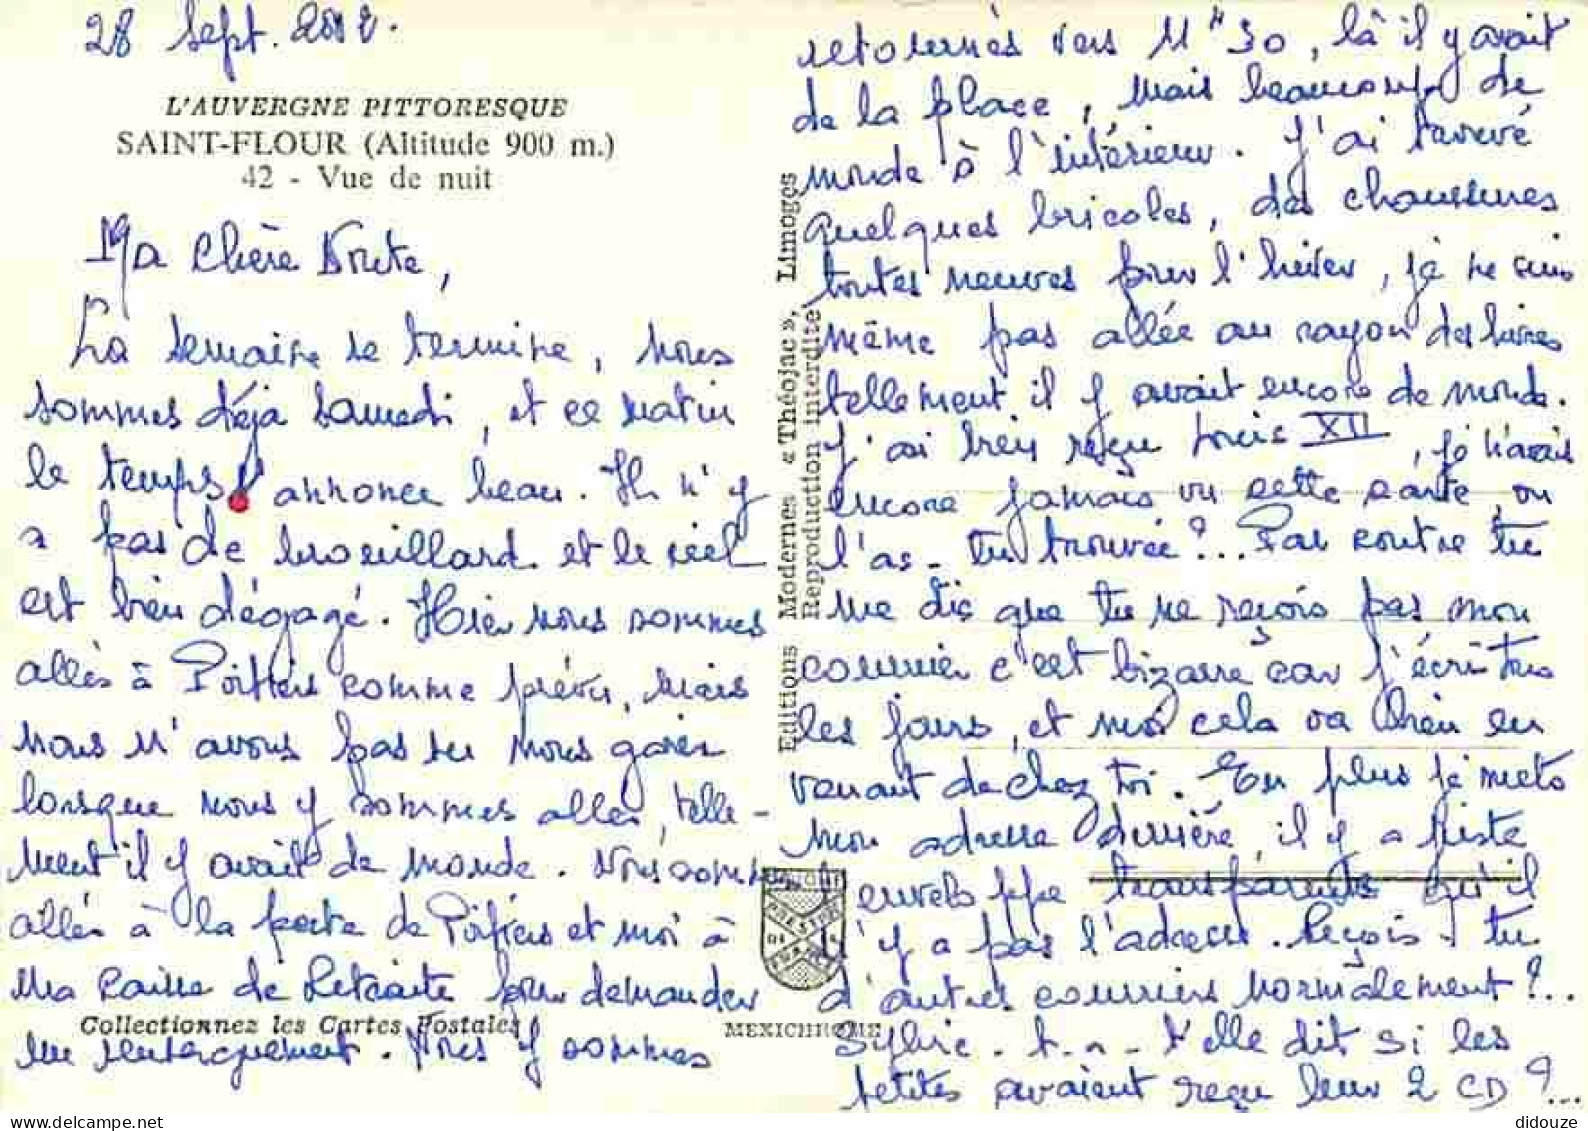 28 Sept.
L'AUVERGNE PITTORESQUE
SAINT-FLOUR (Altitude 900 m.)
42 - Vue de nuit
Ma Chère
La semaine se termine, nous
sommes déjà samedi, et ce matin
le temps s'annonce beau. Il n'y
a pas de brouillard et le ciel
est bien dégagé. Hier nous sommes
allés à Poitiers comme prévu, mais
nous n'avons pas pu nous garer
lorsque nous y sommes allés, telle-
ment il y avait de monde. Nous sommes
allés à la porte de Poitiers et moi à
ma Caisse de Retraite pour demander
un renseignement. Nous y sommes
Collectionnez les Cartes Postales
retournés vers 11H30, là il y avait
de la place, mais beaucoup de
monde à l'intérieur. J'ai trouvé
quelques bricoles, des chaussures
toutes neuves pour l'hiver, je ne suis
même pas allée au rayon des livres
tellement il y avait encore de monde.
J'ai bien reçu Louis XII, je n'avais
encore jamais vu cette carte, où
l'as-tu trouvée?... Par contre tu
me dis que tu ne reçois pas mon
courrier c'est bizarre car j'écris tous
les jours, et moi cela va bien en
venant de chez toi. En plus je mets
mon adresse derrière, il y a juste
l'enveloppe transparente qu'il
n'y a pas l'adresse. Reçois-tu
d'autres courriers normalement?...
Sylvie t-a-t'elle dit si les
petites avaient reçu leur 2 CD?...
Editions Modernes « Théojac », Limoges
Reproduction interdite
MEXICHROME
didouze